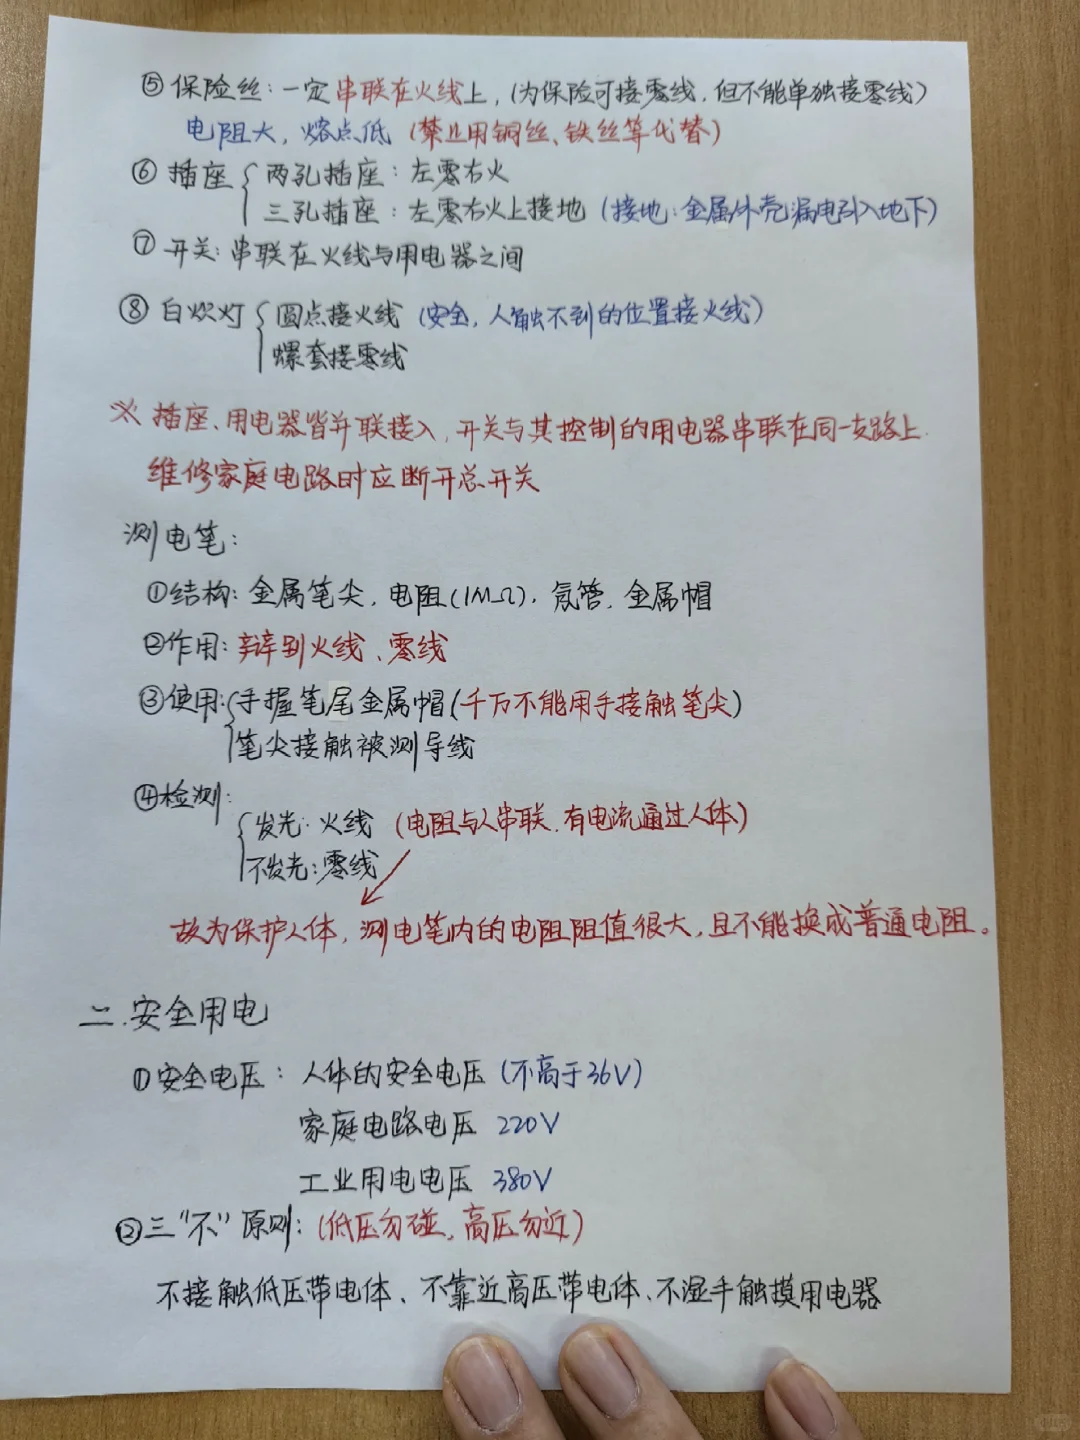 ⑤ 保险丝：一定串联在火线上，(为保险可接零线，但不能单独接零线)
电阻大，熔点低 (禁止用铜丝、铁丝等代替)
⑥ 插座 { 两孔插座：左零右火
三孔插座：左零右火上接地 (接地：金属外壳漏电引入地下)
⑦ 开关：串联在火线与用电器之间
⑧ 白炽灯 { 圆点接火线 (安全，人触不到的位置接火线)
螺套接零线
※ 插座、用电器皆并联接入，开关与其控制的用电器串联在同一支路上.
维修家庭电路时应断开总开关
测电笔：
①结构：金属笔尖，电阻(1MΩ)，氖管，金属帽
②作用：辩别火线、零线
③使用：{ 手握笔尾金属帽 (千万不能用手接触笔尖)
笔尖接触被测导线
④检测：
{ 发光：火线 (电阻与人串联，有电流通过人体)
不发光：零线
故为保护人体，测电笔内的电阻阻值很大，且不能换成普通电阻。
二.安全用电
①安全电压：人体的安全电压 (不高于36V)
家庭电路电压 220V
工业用电电压 380V
②三“不”原则：(低压勿碰，高压勿近)
不接触低压带电体、不靠近高压带电体、不湿手触摸用电器